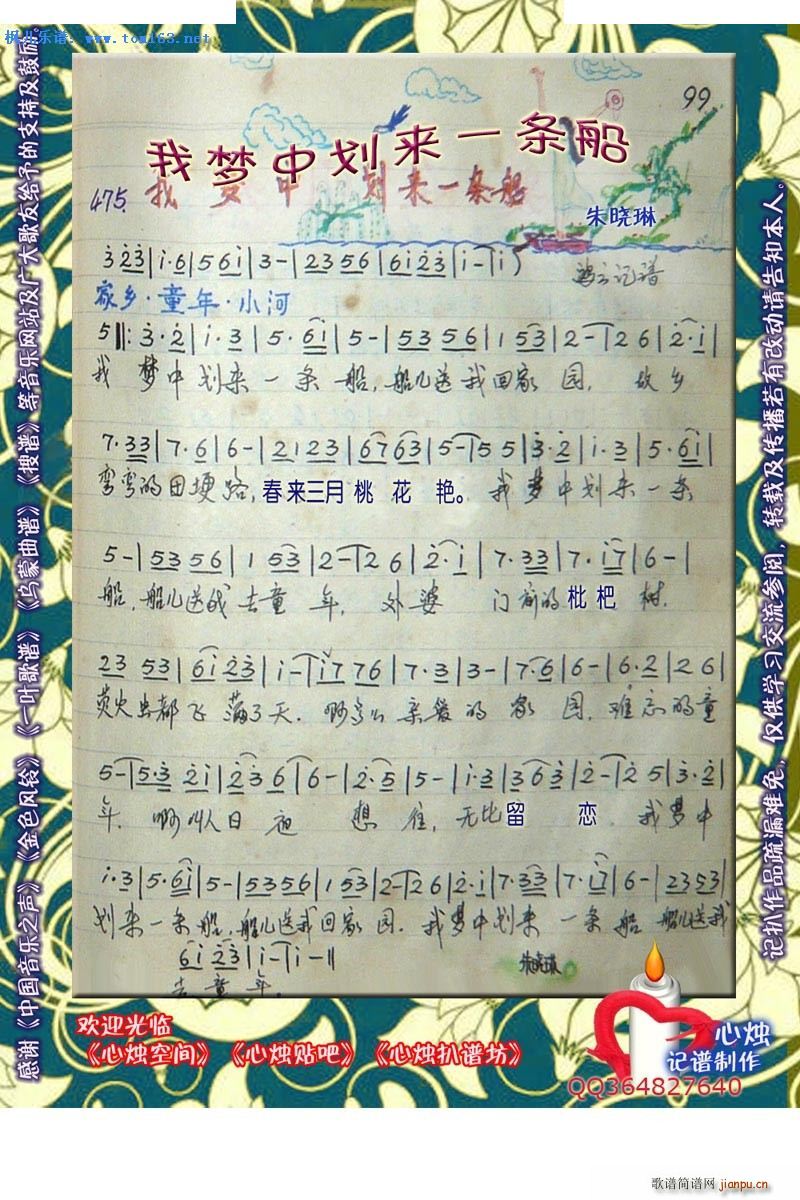 枫儿乐谱：www.tom163.net
99
我梦中划来一条船
475. 我梦中划来一条船
朱晓琳
3 2 3 | i · 6 | 5 6 i | 3 - | 2 3 5 6 | 6 i 2 3 | i - | i )
记谱
家乡·童年·小河
5 ‖: 3 · 2 | i · 3 | 5 · 6 i | 5 - | 5 3 5 6 | 1 5 3 | 2 - | 2 6 | 2 · i |
我 梦中 划来 一 条 船，船儿送我回家 园， 故乡
7 · 3 3 | 7 · 6 | 6 - | 2 1 2 3 | 6 7 6 3 | 5 - | 5 5 | 3 · 2 | i · 3 | 5 · 6 i |
弯弯的田埂路，春来三月桃 花 艳。 我梦中划来 一条
5 - | 5 3 5 6 | 1 5 3 | 2 - | 2 6 | 2 · i | 7 · 3 3 | 7 · i 7 | 6 - |
船，船儿送我去童 年， 外婆 门前的枇杷 树，
2 3 5 3 | 6 i 2 3 | i - | i 7 7 6 | 7 · 3 | 3 - | 7 · 6 | 6 - | 6 · 2 | 2 6 |
萤火虫都飞 满了天． 啊 亲爱的 家 园，难忘的童
5 - | 5 · 3 2 i | 2 3 6 | 6 - | 2 · 5 | 5 - | i · 3 | 3 6 3 | 2 - | 2 5 | 3 · 2 |
年． 啊叫人日 夜 想 往，无比留 恋． 我梦中
i · 3 | 5 · 6 i | 5 - | 5 3 5 6 | 1 5 3 | 2 - | 2 6 | 2 · i | 7 · 3 3 | 7 · i 7 | 6 - | 2 3 5 3 |
划来一条船，船儿送我回家 园．我梦中划来 一条 船 船儿送我
6 i 2 3 | i - | i - ‖
去 童 年．
朱晓琳
感谢《中国音乐之声》《金色风铃》《一叶歌谱》《乌蒙曲谱》《搜谱》等音乐网站及广大歌友给予的支持及鼓励
记扒作品疏漏难免，仅供学习交流参阅，转载及传播若有改动请告知本人。
欢迎光临
《心烛空间》《心烛贴吧》《心烛扒谱坊》
心烛
记谱制作
QQ364827640
歌谱简谱网
jianpu.cn